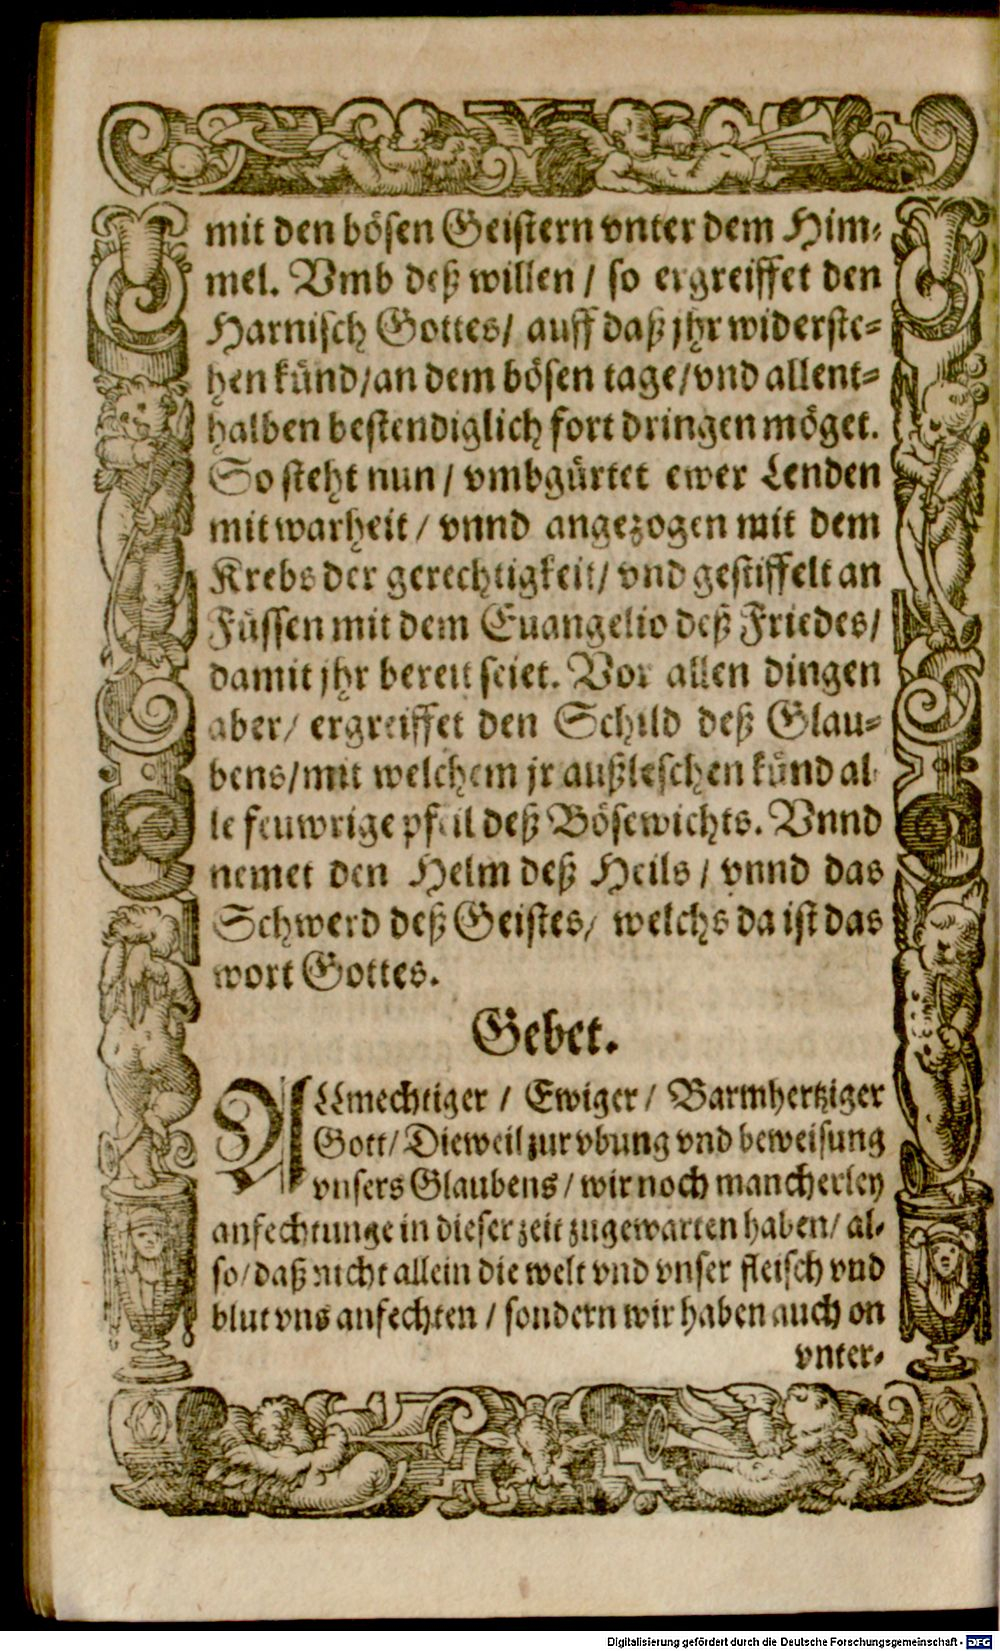 mit den bösen Geistern vnter dem Him-
mel. Vmb deß willen / so ergreiffet den
Harnisch Gottes / auff daß jhr widerste-
hen künd / an dem bösen tage / vnd allent-
halben bestendiglich fort dringen möget.
So steht nun / vmbgürtet ewer Lenden
mit warheit / vnnd angezogen mit dem
Krebs der gerechtigkeit / vnd gestiffelt an
Füssen mit dem Euangelio deß Friedes /
damit jhr bereit seiet. Vor allen dingen
aber / ergreiffet den Schild deß Glau-
bens / mit welchem jr außleschen künd al
le feuwrige pfeil deß Bösewichts. Vnnd
nemet den Helm deß Heils / vnnd das
Schwerd deß Geistes / welchs da ist das
wort Gottes.
Gebet.
ALLmechtiger / Ewiger / Barmhertziger
Gott / Dieweil zur vbung vnd beweisung
vnsers Glaubens / wir noch mancherley
anfechtunge in dieser zeit zugewarten haben / al-
so / daß nicht allein die welt vnd vnser fleisch vnd
blut vns anfechten / sondern wir haben auch on
vnter-
Digitalisierung gefördert durch die Deutsche Forschungsgemeinschaft - DFG